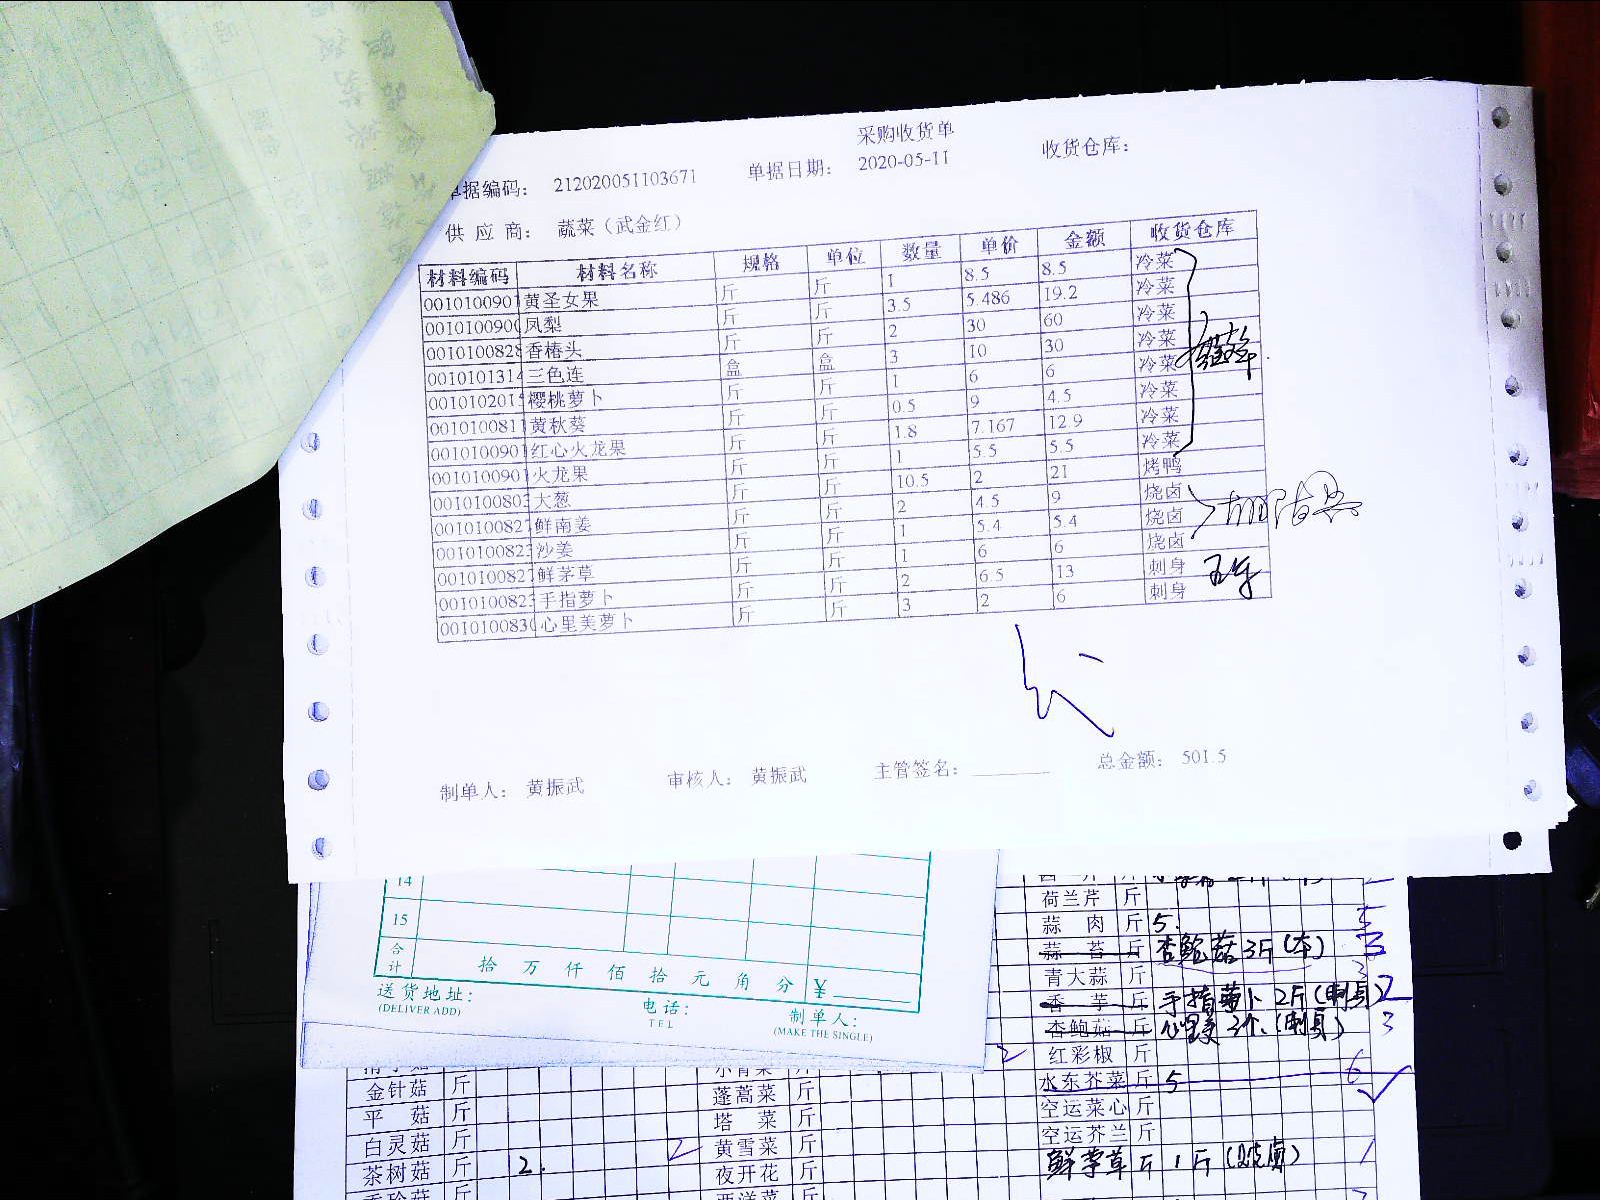 采购收货单
单据编码： 212020051103671 单据日期： 2020-05-11 收货仓库：
供 应 商： 蔬菜（武金红）
材料编码 材料名称 规格 单位 数量 单价 金额 收货仓库
001010090 黄圣女果 斤 斤 1 8.5 8.5 冷菜
001010090 凤梨 斤 斤 3.5 5.486 19.2 冷菜
001010082 香椿头 斤 斤 2 30 60 冷菜
0010101314 三色连 盒 盒 3 10 30 冷菜
001010201 樱桃萝卜 斤 斤 1 6 6 冷菜
001010081 黄秋葵 斤 斤 0.5 9 4.5 冷菜
001010090 红心火龙果 斤 斤 1.8 7.167 12.9 冷菜
001010090 火龙果 斤 斤 1 5.5 5.5 冷菜
001010080 大葱 斤 斤 10.5 2 21 烤鸭
001010082 鲜南姜 斤 斤 2 4.5 9 烧卤
001010082 沙姜 斤 斤 1 5.4 5.4 烧卤
001010082 鲜茅草 斤 斤 1 6 6 烧卤
001010082 手指萝卜 斤 斤 2 6.5 13 刺身
001010083 心里美萝卜 斤 斤 3 2 6 刺身
制单人： 黄振武 审核人： 黄振武 主管签名： 总金额： 501.5
14
15
合计 拾 万 仟 佰 拾 元 角 分 ¥
送货地址： 电话： 制单人：
(DELIVER ADD) TEL (MAKE THE SINGLE)
荷兰芹 斤
蒜 肉 斤 5.
蒜 苔 斤 杏鲍菇 3斤 3
青大蒜 斤
香 芋 斤 手指萝卜 2斤 (刺身) 2
杏鲍菇 斤 3个. (刺身) 3
红彩椒 斤
水东芥菜 斤 5 6
空运菜心 斤
空运芥兰 斤
鲜茅草 斤 1斤 1
金针菇 斤 蓬蒿菜 斤
平 菇 斤 塔 菜 斤
白灵菇 斤 黄雪菜 斤
茶树菇 斤 2. 夜开花 斤